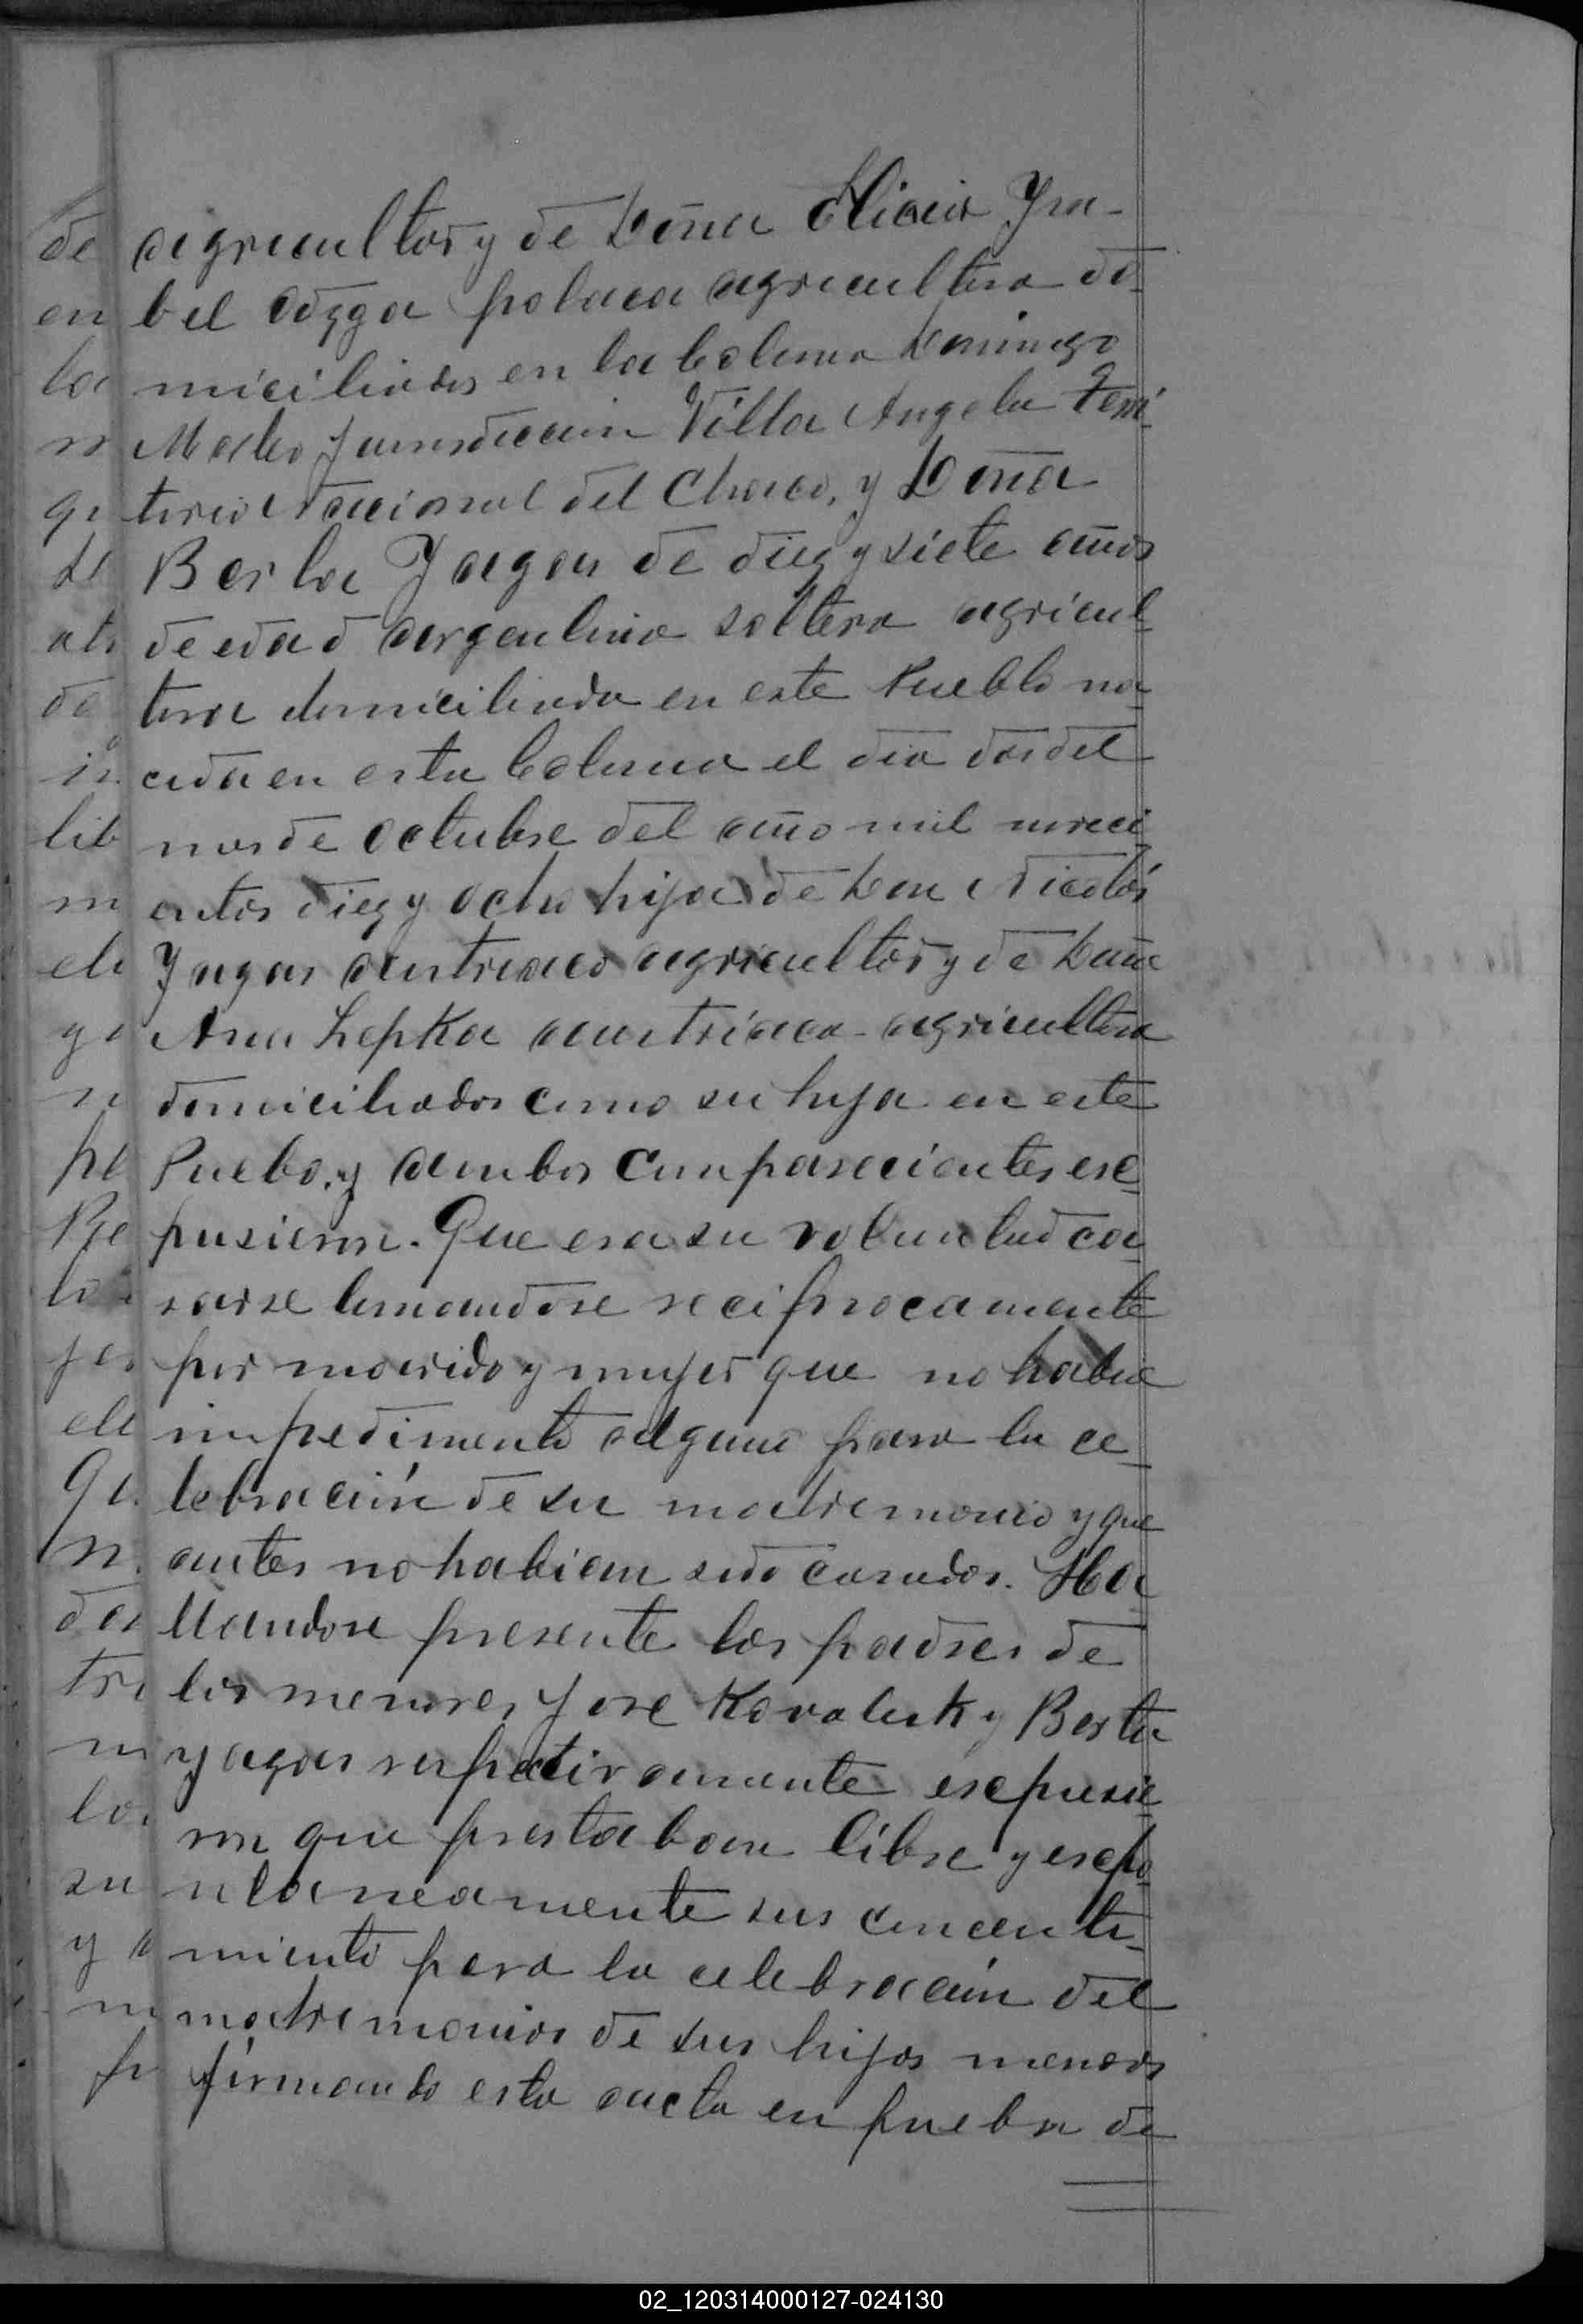 agricultor y de Doña Ysa-
bel polaca agricultora do-
miciliados en la Colonia Domingo
Matheu Jurisdiccion Villa Angela Terri-
torio Nacional del Chaco, y Doña
Berta Jagas de diez y siete años
de edad argentina soltera agricul-
tora domiciliada en este Pueblo na-
cida en esta Colonia el dia dos del
mes de octubre del año mil noveci-
entos diez y ocho hija de Don Nicolás
Jagas austriaco agricultor y de Doña
Ana Lepka austriaca agricultora
domiciliados como su hija en este
Puebo, y ambos comparecientes esc-
pusieron. Que era su voluntad ca-
sarse tomandose reciprocamente
por marido y mujer que no habia
impedimento alguno para la ce-
lebración de su matrimonio y que
antes no habian sido casados. Ha-
llandose presente los padres de
los menores Jose Kovaluk y Berta
yagas respectivamente escpusie-
ron que prestaban libre y escpo-
ntaneamente sus concenti-
miento para la celebración del
matrimonios de sus hijos menores
firmando esta acta en prueba de
02_120314000127-024130